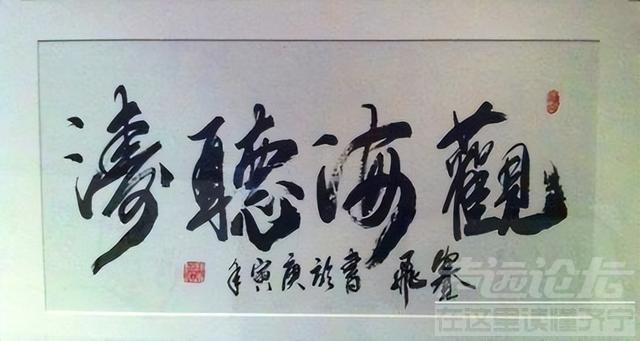 觀海聽濤
飛書於庚寅年
在这里读懂齐宁